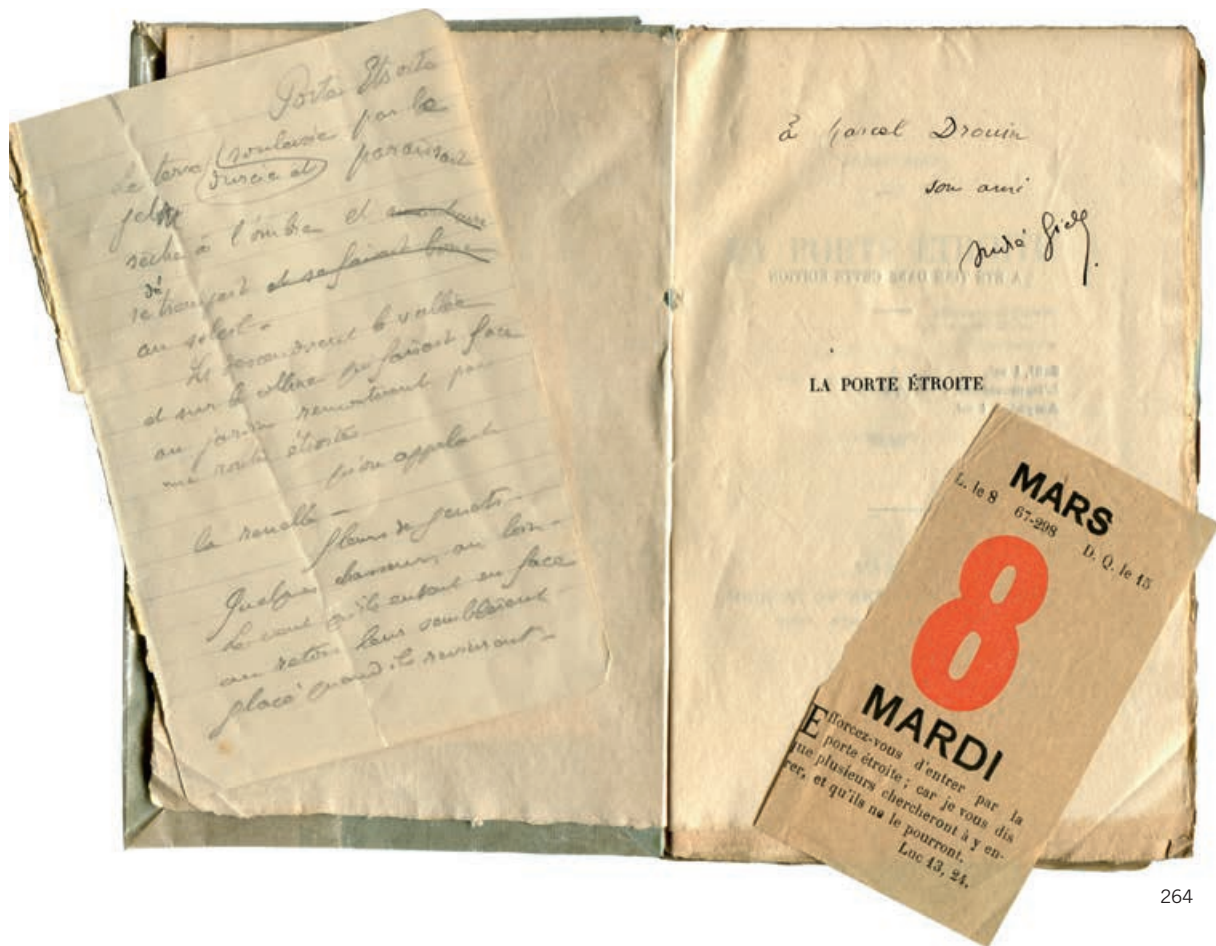 Porte Étroite
La terre soulevée par le
durcie et paraissait
gel
sèche à l'ombre et
dé
se trempait et se faisait boue
au soleil –
Ils descendirent la vallée
et sur la colline qui faisait face
au jardin remontèrent par
une route étroite
qu'on appelait
la ruelle –
fleurs de genets –
Quelques chasseurs, au loin –
Le vent qu'ils eurent en face
au retour leur
glacé quand ils revinrent –
à Marcel Drouin
son ami
André Gide.
LA PORTE ÉTROITE
MARS
L. le 8 67-298 D. Q. le 15
8
MARDI
Efforcez-vous d'entrer par la
porte étroite ; car je vous dis
que plusieurs chercheront à y en-
rer, et qu'ils ne le pourront.
Luc 13, 24.
264